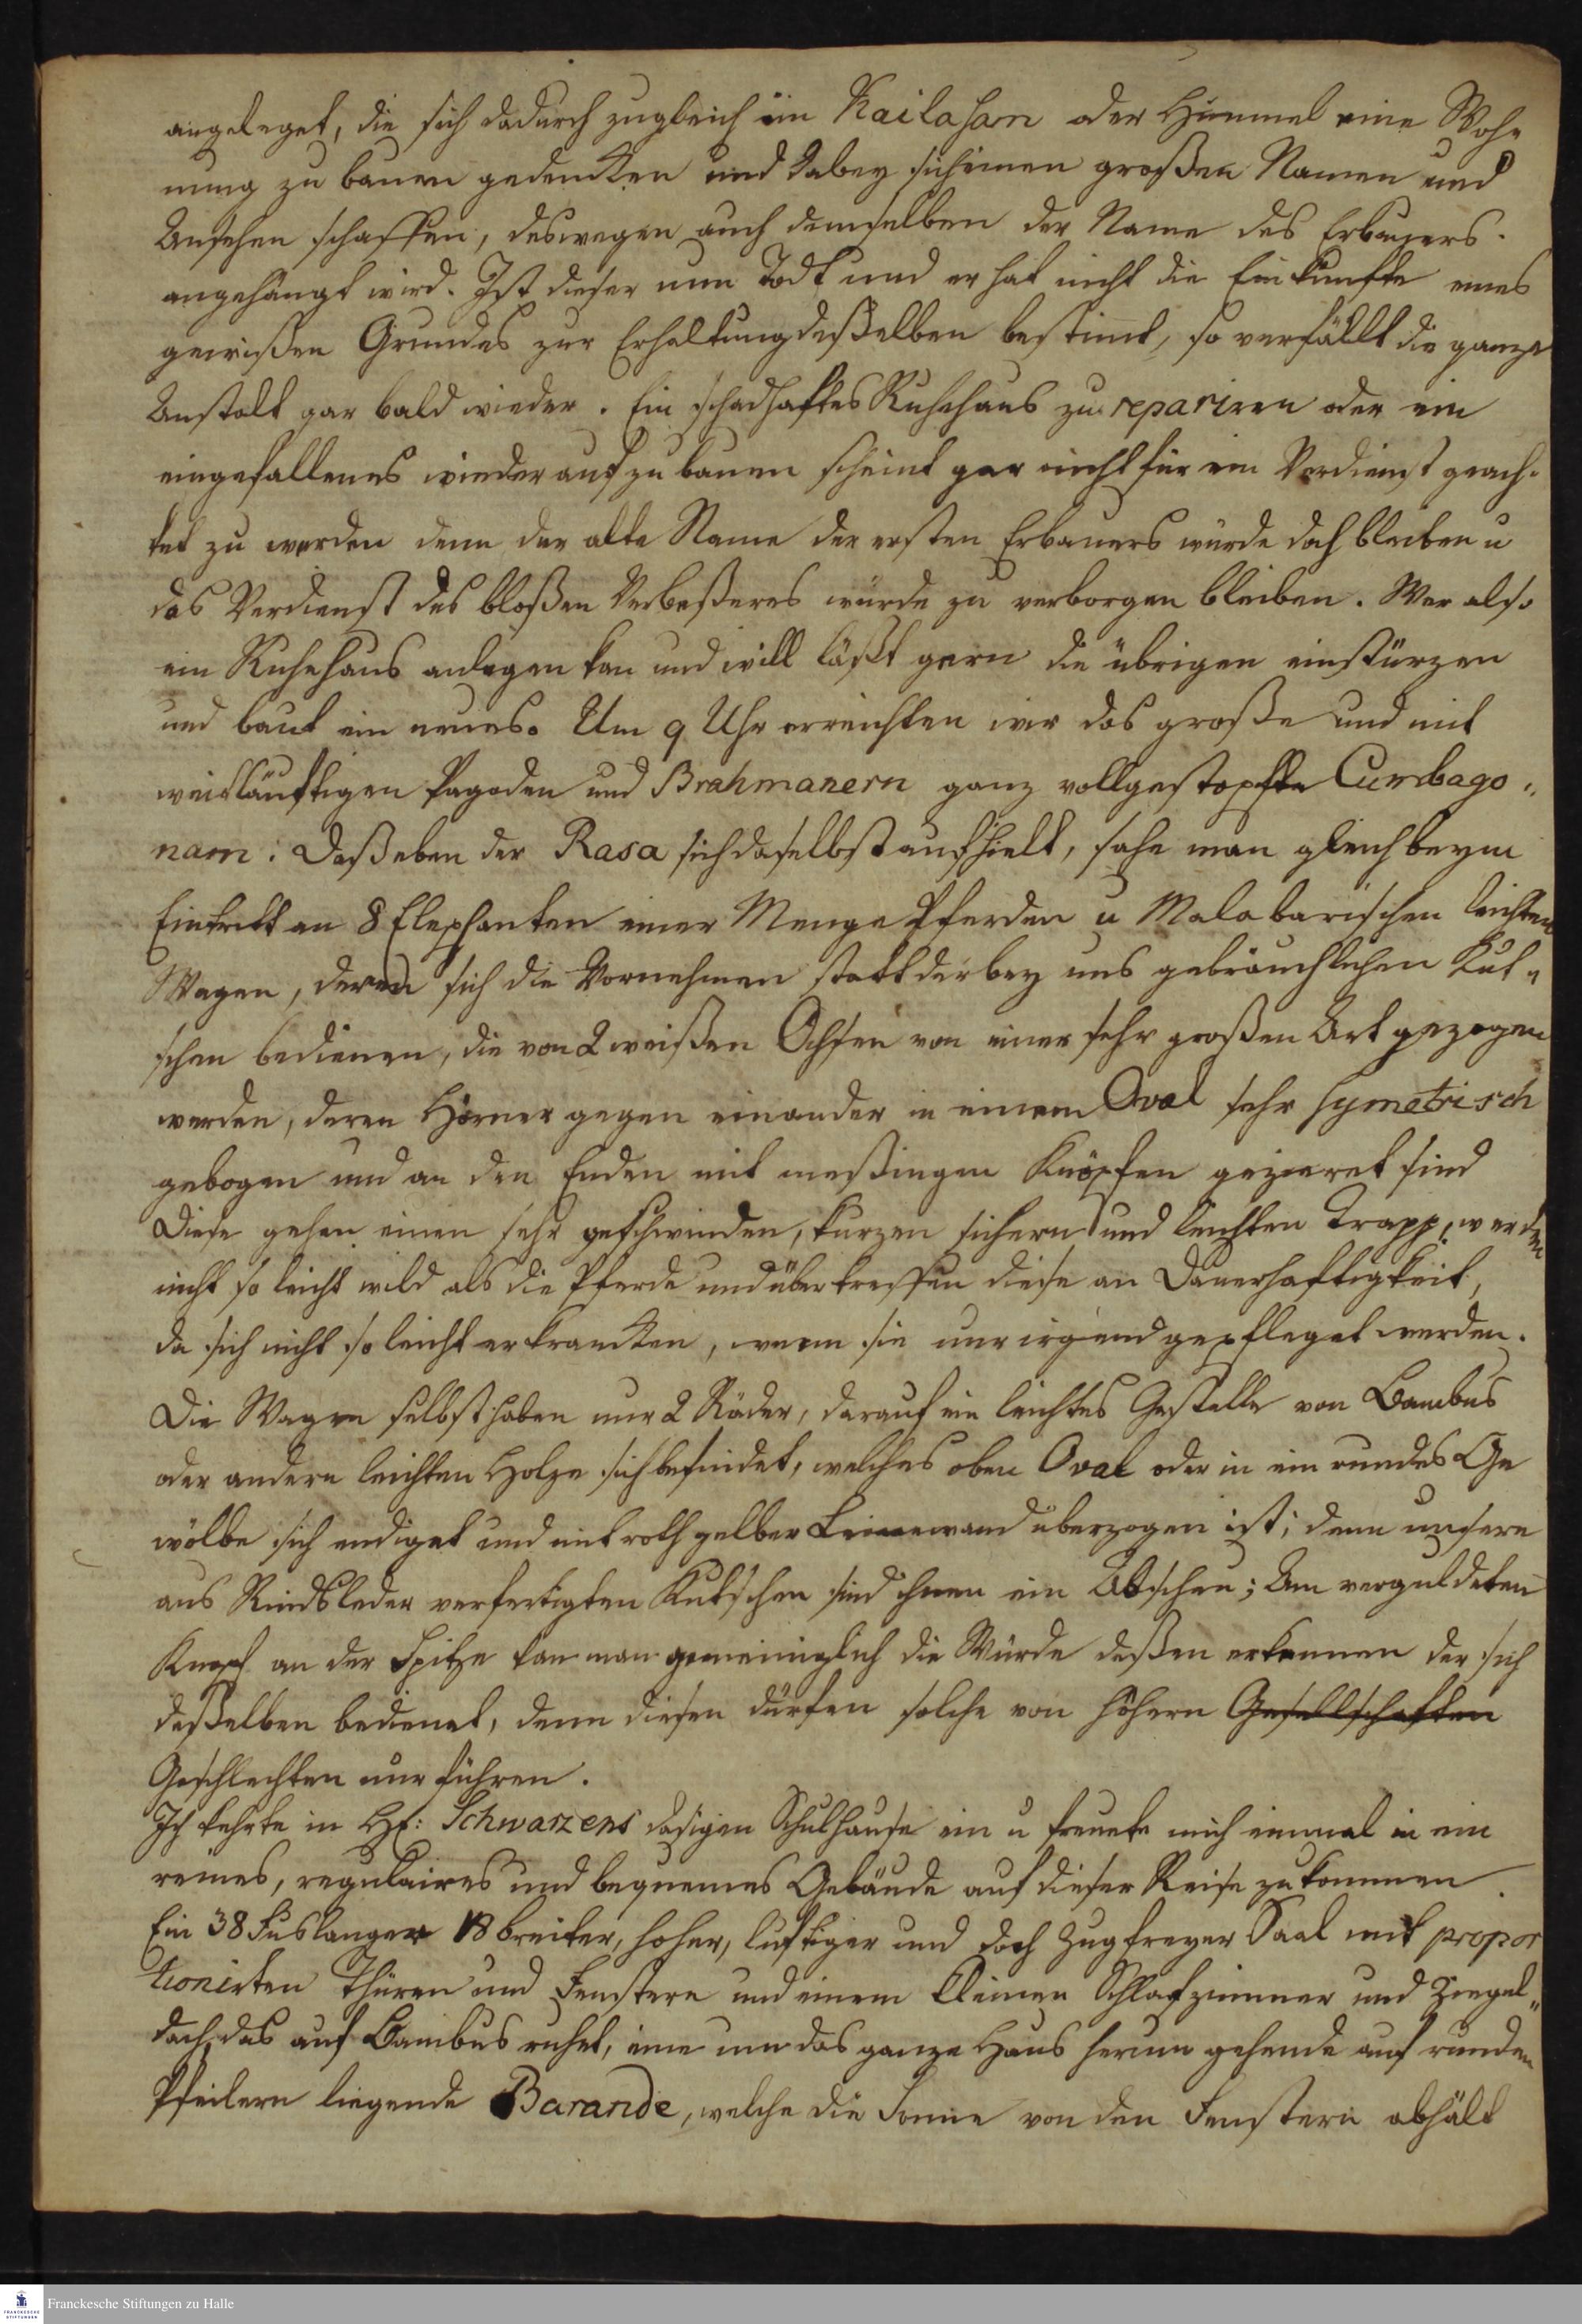 angeleget, die sich dadurch zugleich im Kailasam oder Himmel eine Woh„
nung zu bauen gedencken und dabey sich einen großen Namen und
Ansehen schaffen, deswegen auch demselben der Name des Erbauers
angehängt wird. Ist dieser nun Todt und er hat nicht die Einkünfte eines
gewißen Grundes zur Erhaltung deßelben bestimt, so verfällt die ganze
Anstalt gar bald wieder. Ein schadhaftes Ruhehaus zu repariren oder ein
eingefallenes wieder aufzubauen scheint gar nicht für ein Verdienst geach„
tet zu werden denn der alte Name der ersten Erbauers würde doch bleiben u
das Verdienst des bloßen Verbeßeres würde zu verborgen bleiben. Wer also
ein Ruhehaus anlegen kan und will läßt gern die übrigen einstürzen
und baut ein neues. Um 9 Uhr erreichten wir das große und mit
weitläuftigen Pagoden und Brahmanern ganz vollgestopfte Cumbago„
nam: Daß eben der Rasa sich daselbst aufhielt, sahe man gleich beym
Eintritt an 8 Elephanten einer Menge Pferden u Malabarischen leichten
Wagen, deren sich die Vornehmen statt der bey uns gebräuchlichen Kut„
schen bedienen, die von 2 weißen Ochsen von einer sehr großen Art gezogen
werden, deren Hörner gegen einander in einem Oval sehr symetrisch
gebogen und an den Enden mit meßingen Knöpfen gezieret sind
Diese gehen einen sehr geschwinden, kurzen sichern und leichten Trapp, werden
nicht so leicht wild als die Pferde und übertreffen diese an Dauerhaftigkeit,
da sich nicht so leicht erkrancken, wenn sie nur irgend gepfleget werden.
Die Wagen selbst haben nur 2 Räder, darauf ein leichtes Gestelle von Bambus
oder andern leichten Holze sich befindet, welches oben Oval oder in ein rundes Ge
wölbe sich endiget und mit roth gelber Leinewand überzogen ist; denn unsere
aus Rindsleder verfertigten Kutschen sind ihnen ein Abscheu; Am verguldeten
Knopf an der Spitze kan man gemeiniglich die Würde deßen erkennen der sich
deßelben bedienet, denn diesen dürfen solche von höhern Gesellschaften
Geschlechten nur führen.
Ich kehrte in HE: Schwarzens dasigen Schulhause ein u freuete mich einmal in ein
reines, regulaires und bequemes Gebäude auf dieser Reise zu kommen.
Ein 38 Fus langer 18 breiter, hoher, luftiger und doch Zugfreyer Saal mit propor
tionirten Thüren und Fenstern und einem kleinen Schlafzimmer und Ziegel„
dach, das auf Bambus ruhet, eine um das ganze Haus herum gehende auf runden
Pfeilern liegende Barande, welche die Sonne von den Fenstern abhält
Franckesche Stiftungen zu Halle